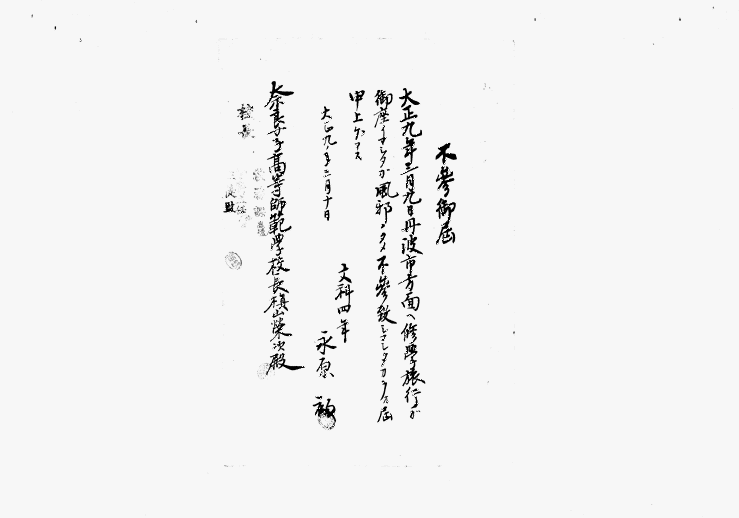 不參御届
大正九年三月九日丹波市方面へ修學旅行ガ
御座イマシタガ風邪ノタメ不參致シマシタカラ此段届
申上ゲマス
大正九年三月十日
文科四年
永原
奈良女子高等師範學校長槇山榮次殿